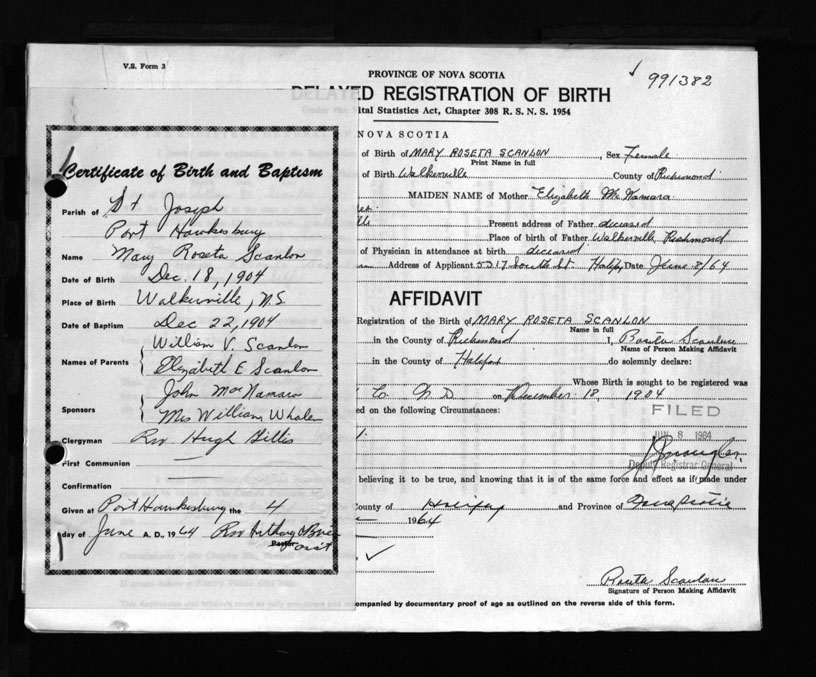 V.S. Form 3
991382
PROVINCE OF NOVA SCOTIA
DELAYED REGISTRATION OF BIRTH
ital Statistics Act, Chapter 308 R. S. N. S. 1954
NOVA SCOTIA
of Birth of MARY ROSETA SCANLON, Sex Female
Print Name in full
of Birth Walkerville County of Richmond
MAIDEN NAME of Mother Elizabeth McNamara
Present address of Father diceased
Place of birth of Father Walkerville, Richmond
of Physician in attendance at birth diceased
Address of Applicant 5317 South St. Halifx, Date June 8/64
AFFIDAVIT
Registration of the Birth of MARY ROSETA SCANLON
Name in full
in the County of Richmond I, Roseta Scanlon
Name of Person Making Affidavit
in the County of Halifax do solemnly declare:
Whose Birth is sought to be registered was
on December 18, 1904
ed on the following Circumstances:
FILED
JUN 8 1964
Deputy Registrar General
believing it to be true, and knowing that it is of the same force and effect as if made under
County of Halifax and Province of Nova Scotia
1964
Roseta Scanlon
Signature of Person Making Affidavit
ompanied by documentary proof of age as outlined on the reverse side of this form.
Certificate of Birth and Baptism
Parish of St Joseph
Port Hawkesbury
Name Mary Roseta Scanlon
Date of Birth Dec. 18, 1904
Place of Birth Walkerville, N.S.
Date of Baptism Dec 22, 1904
William V. Scanlon
Names of Parents Elizabeth E Scanlon
John MacNamara
Sponsors Mrs William Whalen
Clergyman Rev Hugh Gillis
First Communion
Confirmation
Given at Port Hawkesbury the 4
day of June A. D., 1964 Rev Anthony O'Brien
Pastor